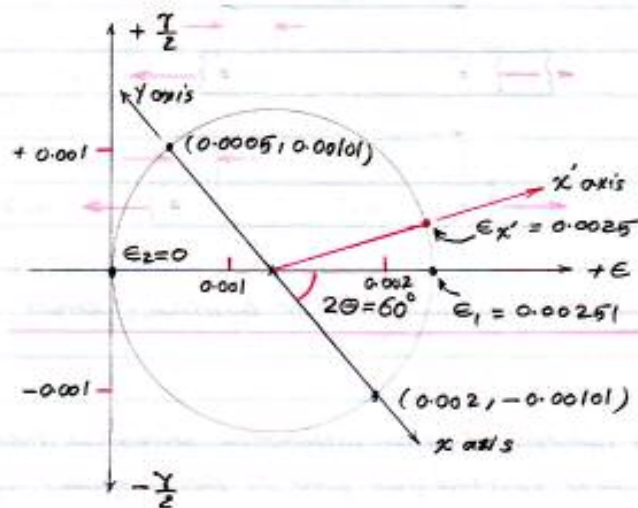 + γ/2
y axis
+ 0.001
(0.0005, 0.00101)
x' axis
ϵx' = 0.0025
ϵ2=0
0.001
0.002
+ϵ
2θ=60°
ϵ1 = 0.00251
-0.001
(0.002, -0.00101)
x axis
- γ/2